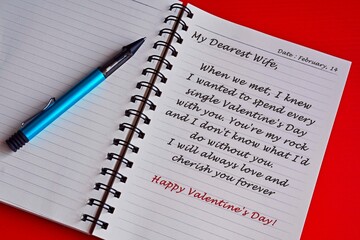 Date : February, 14
My Dearest Wife,
When we met, I knew
I wanted to spend every
single Valentine's Day
with you. You're my rock
and I don't know what I'd
do without you.
I will always love and
cherish you forever
Happy Valentine's Day!